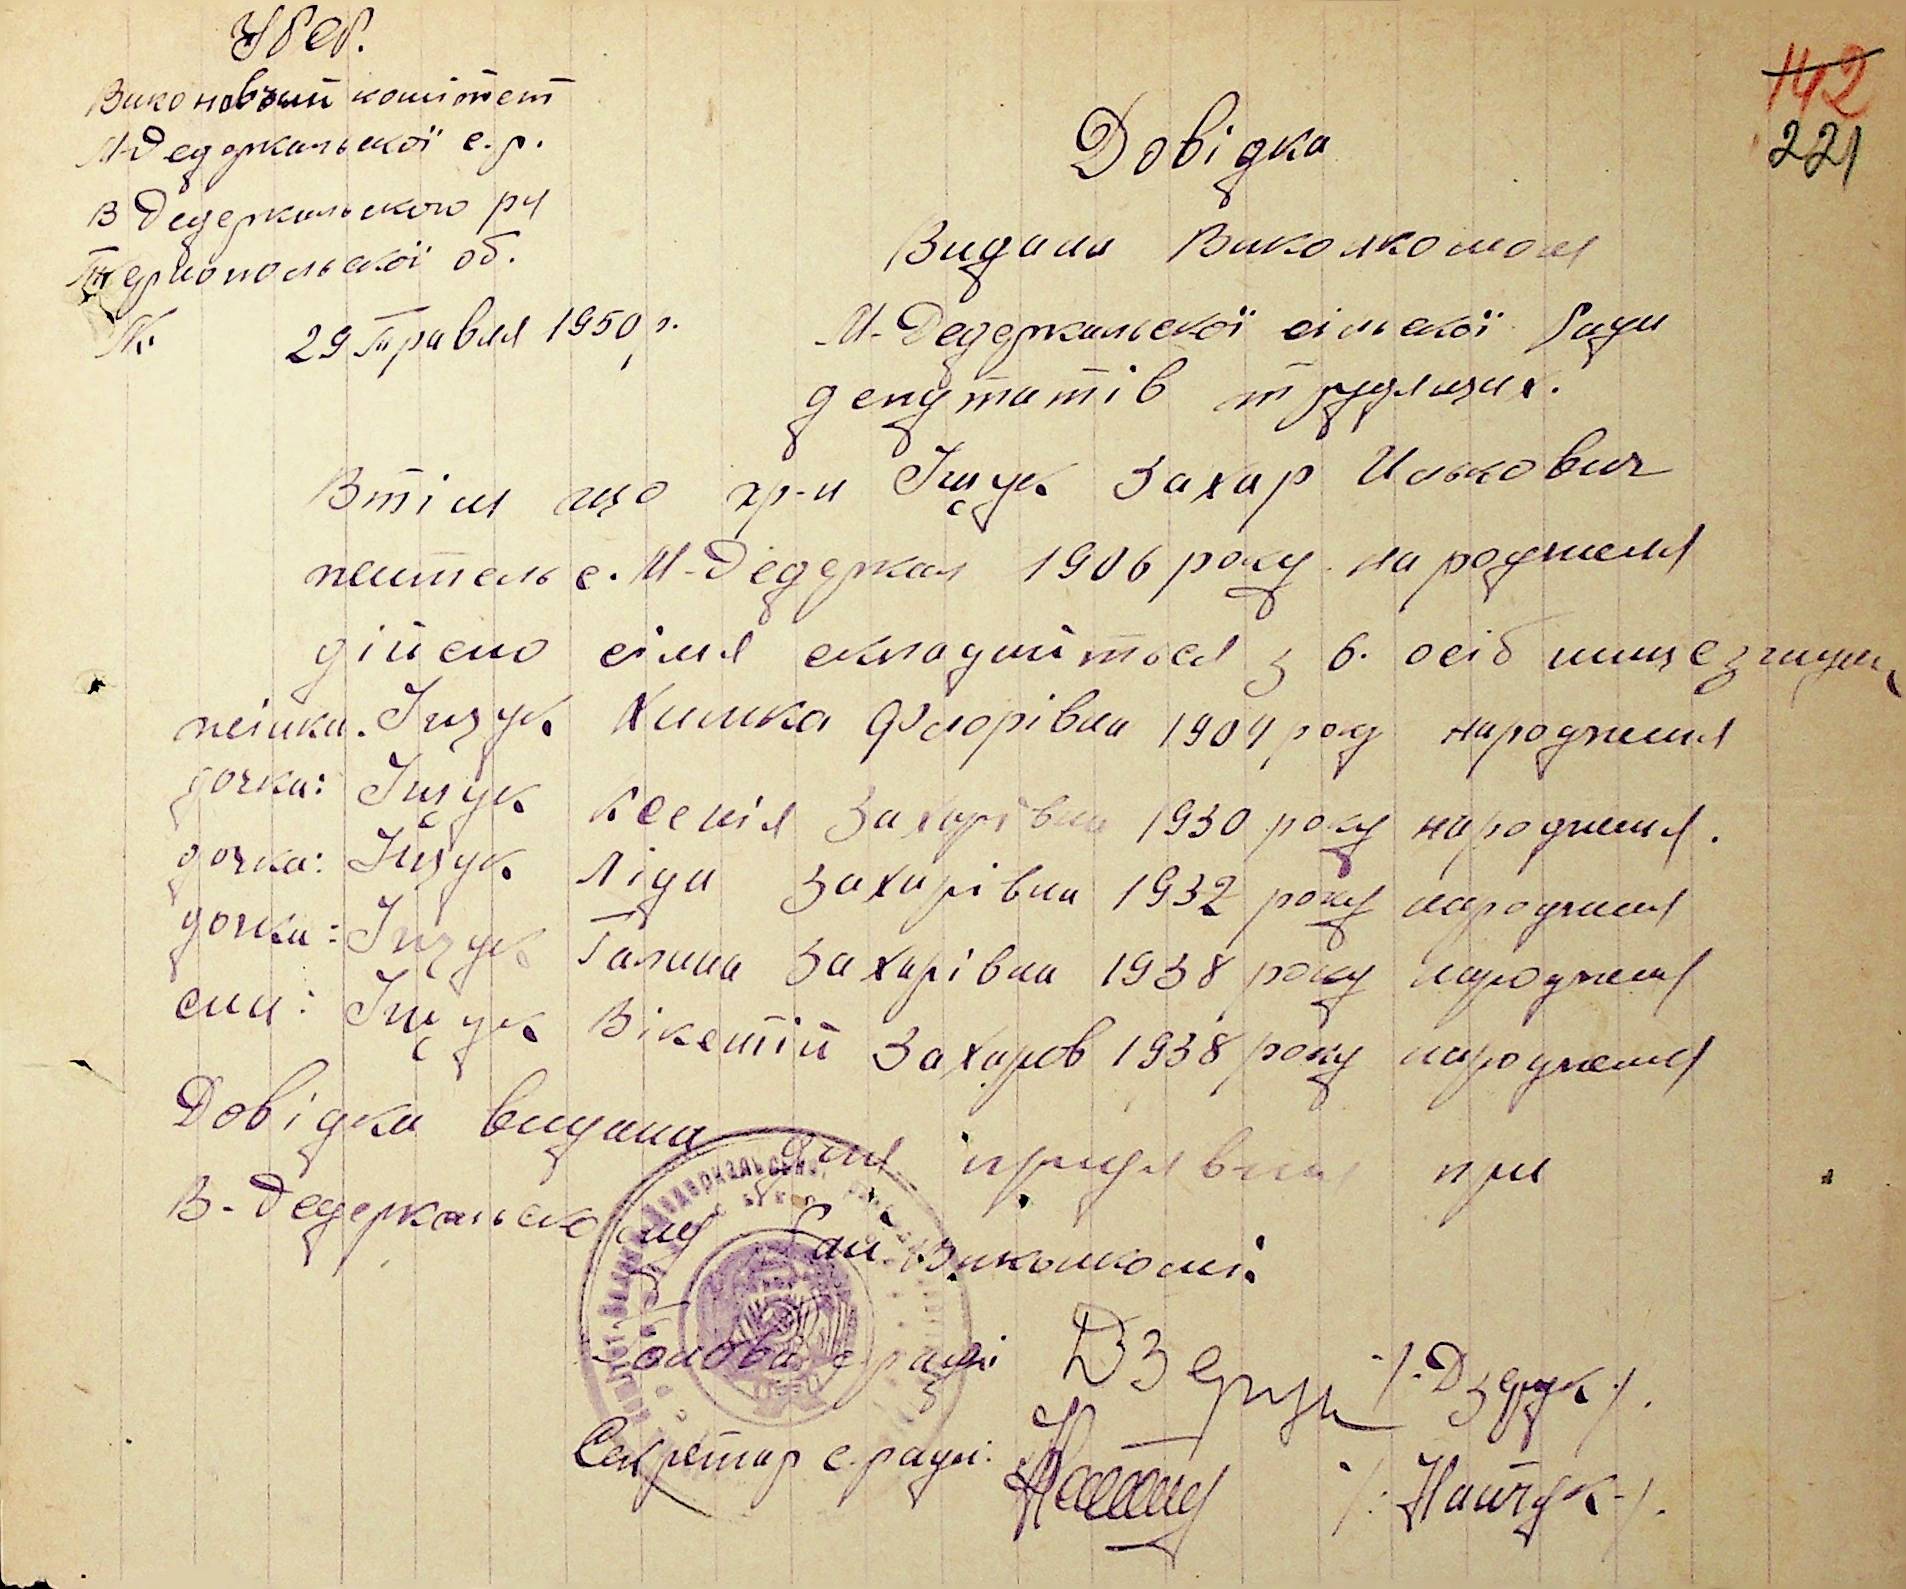 УРСР.
Виконовчий комітет
М-Дедеркальскої с.р.
В Дедеркальского р-н
Тернопольскої об.
№ 29 Травня 1950 р.
142
221
Довідка
Видана Виконкомом
М-Дедеркальскої сільскої Ради
депутатів трудящих.
Втім що гр-н Іщук Захар Ількович
житель с. М-Дедеркал 1906 року народженя
дійсно сімя складаїться з 6. осіб
жінка. Іщук Химка Флорівна 1904 року народженя
дочка: Іщук Ксенія Захарівна 1930 року народженя.
дочка: Іщук Ліда Захарівна 1932 року народженя
дочка: Іщук Галина Захарівна 1938 року народженя
син: Іщук Вікетій Захаров 1938 року народженя
Довідка видана для предявленя при
В-Дедеркальскому Рай Виконкомі.
Голова с. ради
Секретар с. ради: